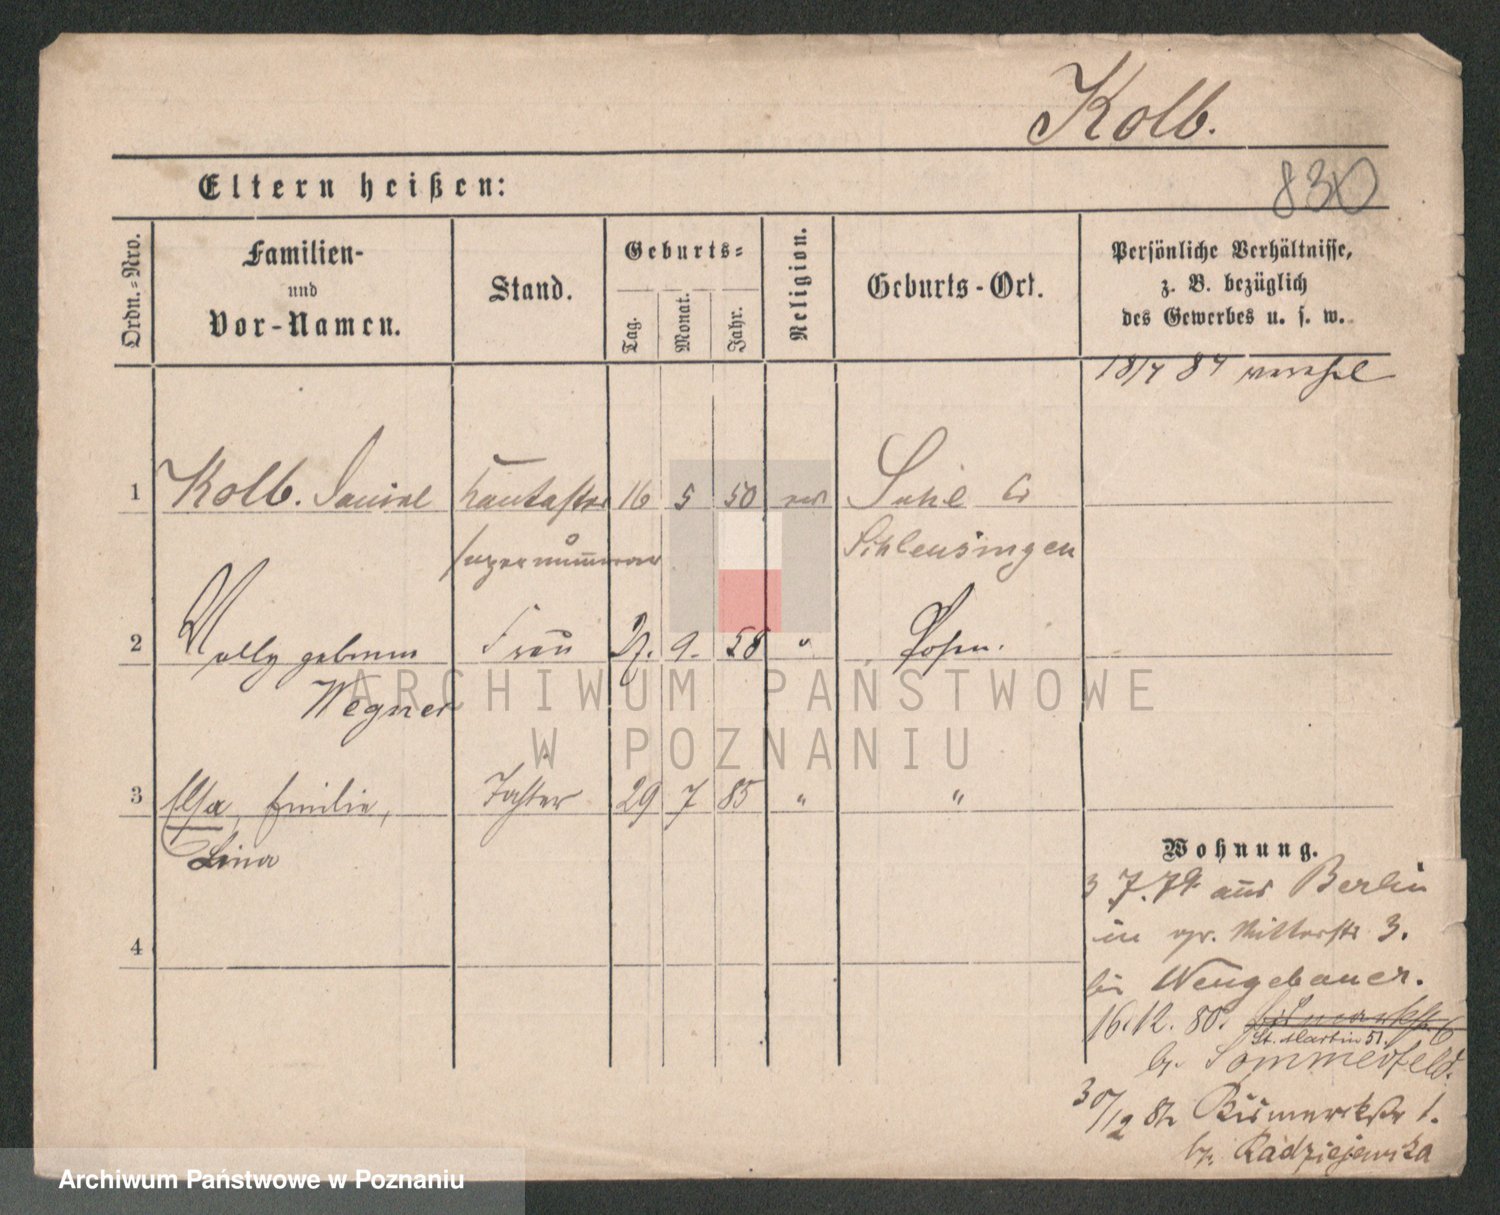 Kolb.
Eltern heißen:
830
Ordn.-Nro.
Familien-
und
Vor-Namen.
Stand.
Geburts-
Tag.
Monat.
Jahr.
Religion.
Geburts-Ort.
Persönliche Verhältnisse,
z. B. bezüglich
des Gewerbes u. s. w.
18/7 87
1 Kolb. Daniel 16 5 50 Suhl
supernumerar Schleusingen
2 Nelly geborene Frau 27. 9. 58 " Posen.
Wegner
3 Elsa, Emilie, Tochter 29 7 85 " "
Lina
4
Wohnung.
3 7. 79 aus Berlin
in gr. Ritterstr 3.
bei Neugebauer.
16.12. 80. Bismarckstr. 6
St. Martin 51.
b. Sommerfeld.
30/12 82 Bismarckstr 1.
b. Radziejewska
ARCHIWUM PAŃSTWOWE
W POZNANIU
Archiwum Państwowe w Poznaniu